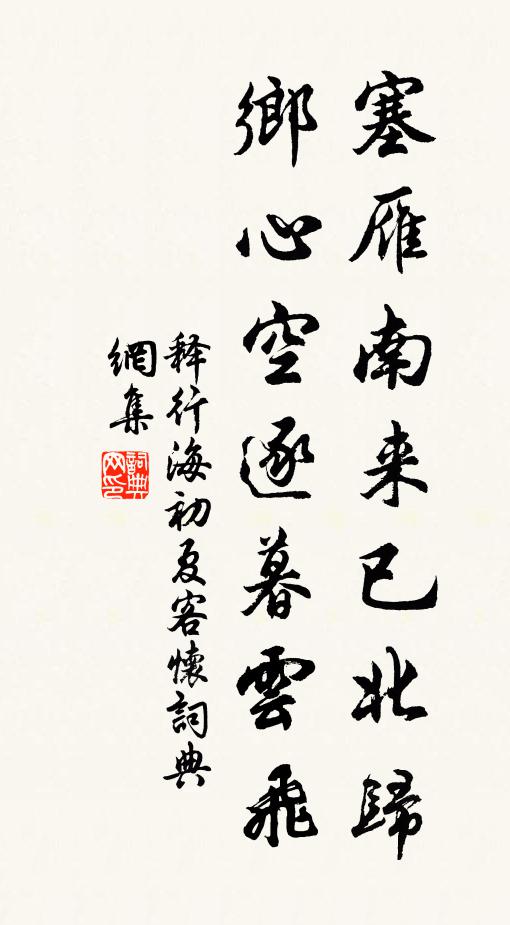 塞雁南来已北歸
鄉心空逐暮雲飛
释行海初夏客懷詞典
網集
詞典
网印